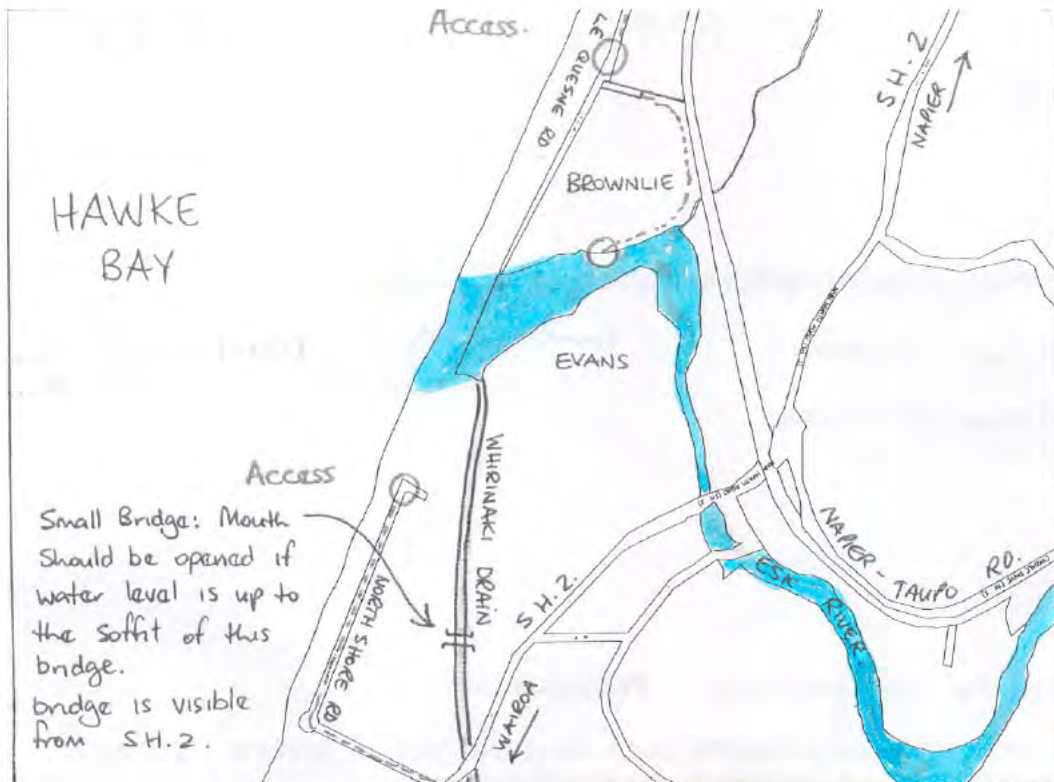 Access.
LE QUESNE RD
S H. 2
NAPIER
BROWNLIE
HAWKE
BAY
EVANS
Access
WHIRINAKI DRAIN
Small Bridge: Mouth
Should be opened if
water level is up to
the soffit of this
bridge.
bridge is visible
from SH.2.
NORTH SHORE RD
S H. 2.
WAIROA
ESK RIVER
NAPIER - TAUPO RD.